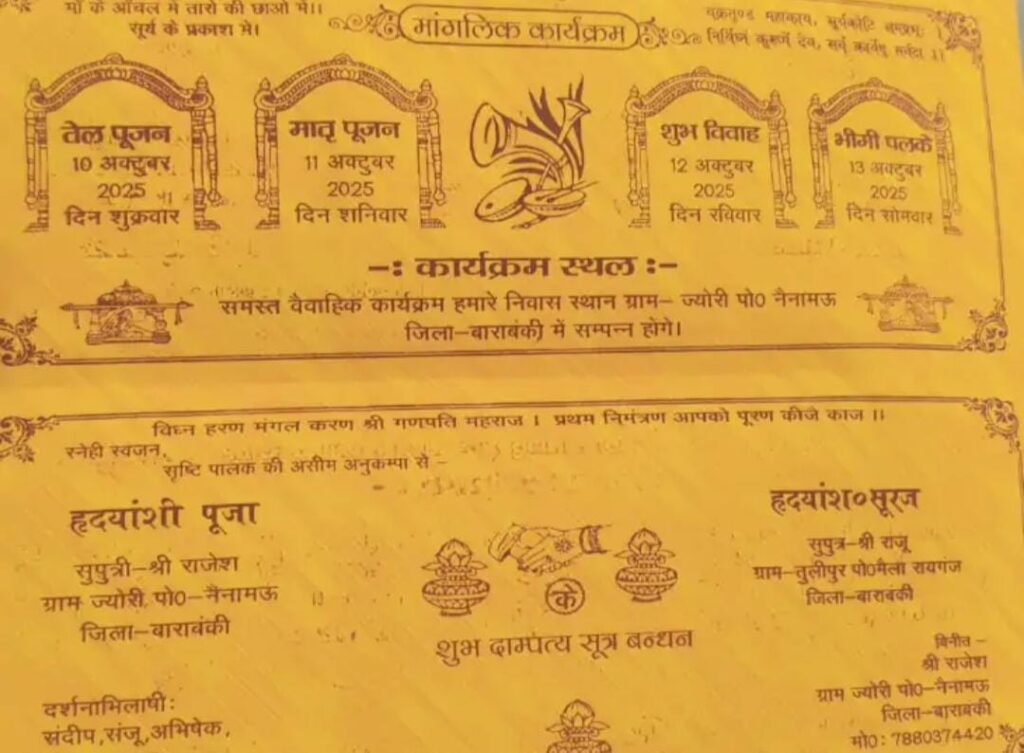 माँ के आँचल में तारों की छाओं में।।
सूर्य के प्रकाश में।
मांगलिक कार्यक्रम
वक्रतुण्ड महाकाय, सूर्यकोटि समप्रभः।
निर्विघ्नं कुरूमें देव, सर्व कार्येषु सर्वदा।।
तेल पूजन
10 अक्टुबर
2025
दिन शुक्रवार
मातृ पूजन
11 अक्टुबर
2025
दिन शनिवार
शुभ विवाह
12 अक्टुबर
2025
दिन रविवार
भीगी पलकें
13 अक्टुबर
2025
दिन सोमवार
-: कार्यक्रम स्थल :-
समस्त वैवाहिक कार्यक्रम हमारे निवास स्थान ग्राम- ज्योरी पो0 नैनामऊ
जिला-बाराबंकी में सम्पन्न होगें।
विघ्न हरण मंगल करण श्री गणपति महराज । प्रथम निमंत्रण आपको पूरण कीजे काज ।।
स्नेही स्वजन,
सृष्टि पालक की असीम अनुकम्पा से -
हृदयांशी पूजा
सुपुत्री-श्री राजेश
ग्राम ज्योरी पो0-नैनामऊ
जिला-बाराबंकी
के
शुभ दाम्पत्य सूत्र बन्धन
हृदयांश० सूरज
सुपुत्र-श्री राजू
ग्राम-तुलीपुर पो0मैला रायगंज
जिला-बाराबंकी
दर्शनाभिलाषी:
संदीप,संजू,अभिषेक,
विनीत -
श्री राजेश
ग्राम ज्योरी पो0-नैनामऊ
जिला-बाराबंकी
मो0: 7880374420